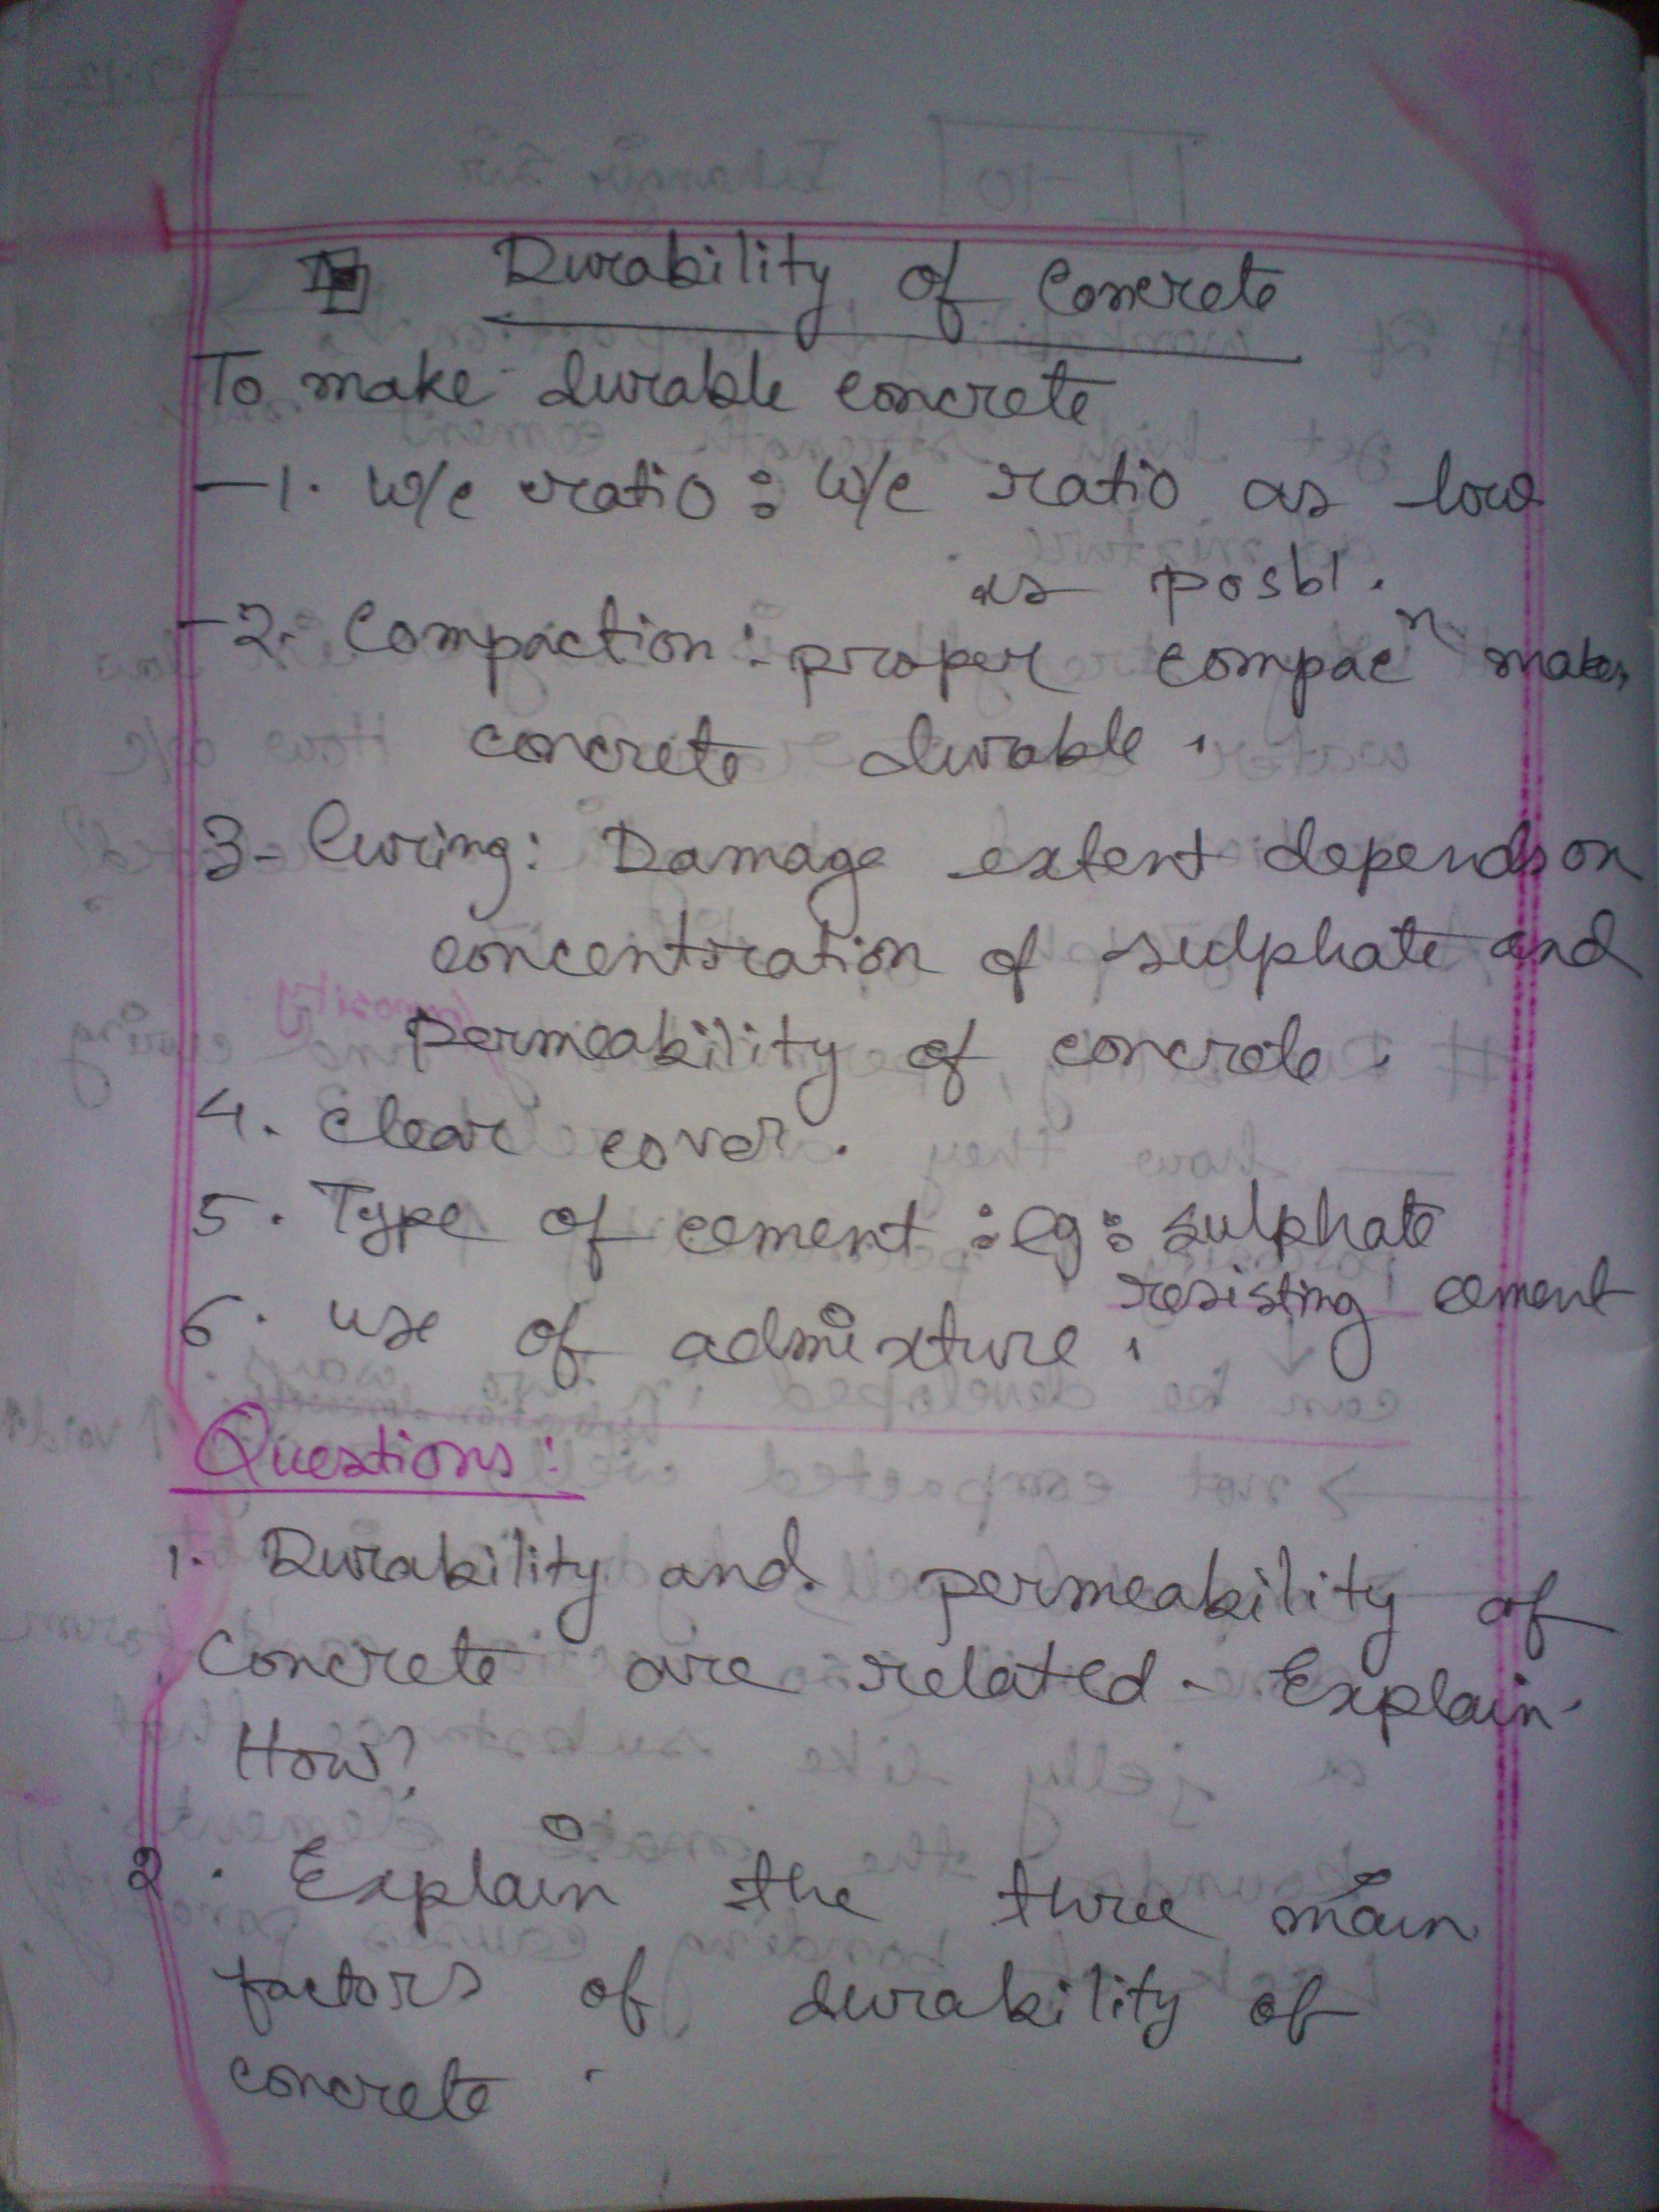 Durability of Concrete
To make durable concrete
-1. W/c ratio : W/c ratio as low
as posbl.
-2. Compaction: proper compacⁿ makes
concrete durable.
3- Curing: Damage extent depends on
concentration of sulphate and
permeability of concrete.
4. Clear cover.
5. Type of cement : eg: sulphate
resisting cement
6. use of admixture.
Questions:
1. Durability and permeability of
concrete are related - Explain.
How?
2. Explain the three main
factors of durability of
concrete.